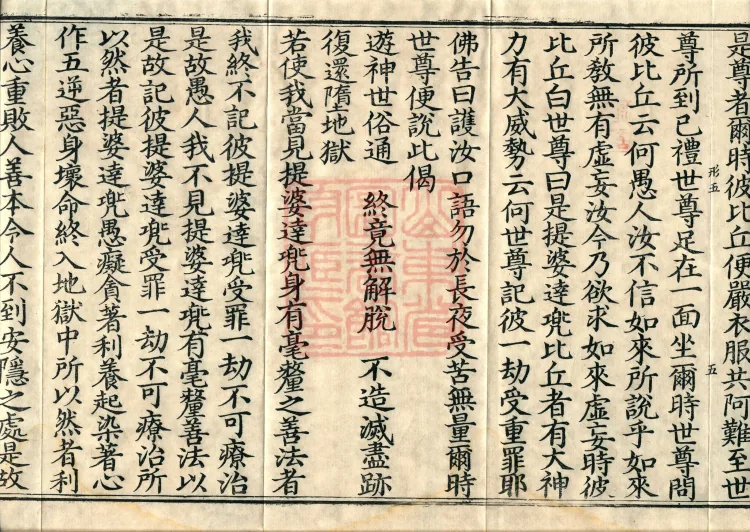 是尊者爾時彼比丘便嚴衣服共阿難至世
形五 五
尊所到已禮世尊足在一面坐爾時世尊問
彼比丘云何愚人汝不信如來所說乎如來
所教無有虛妄汝今乃欲求如來虛妄時彼
比丘白世尊曰是提婆達兜比丘者有大神
力有大威勢云何世尊記彼一劫受重罪耶
佛告曰護汝口語勿於長夜受苦無量爾時
世尊便說此偈
遊神世俗通 終竟無解脫 不造滅盡跡
復還墮地獄
若使我當見提婆達兜身有毫釐之善法者
我終不記彼提婆達兜受罪一劫不可療治
是故愚人我不見提婆達兜有毫釐善法以
是故記彼提婆達兜受罪一劫不可療治所
以然者提婆達兜愚癡貪著利養起染著心
作五逆惡身壞命終入地獄中所以然者利
養心重敗人善本令人不到安隱之處是故